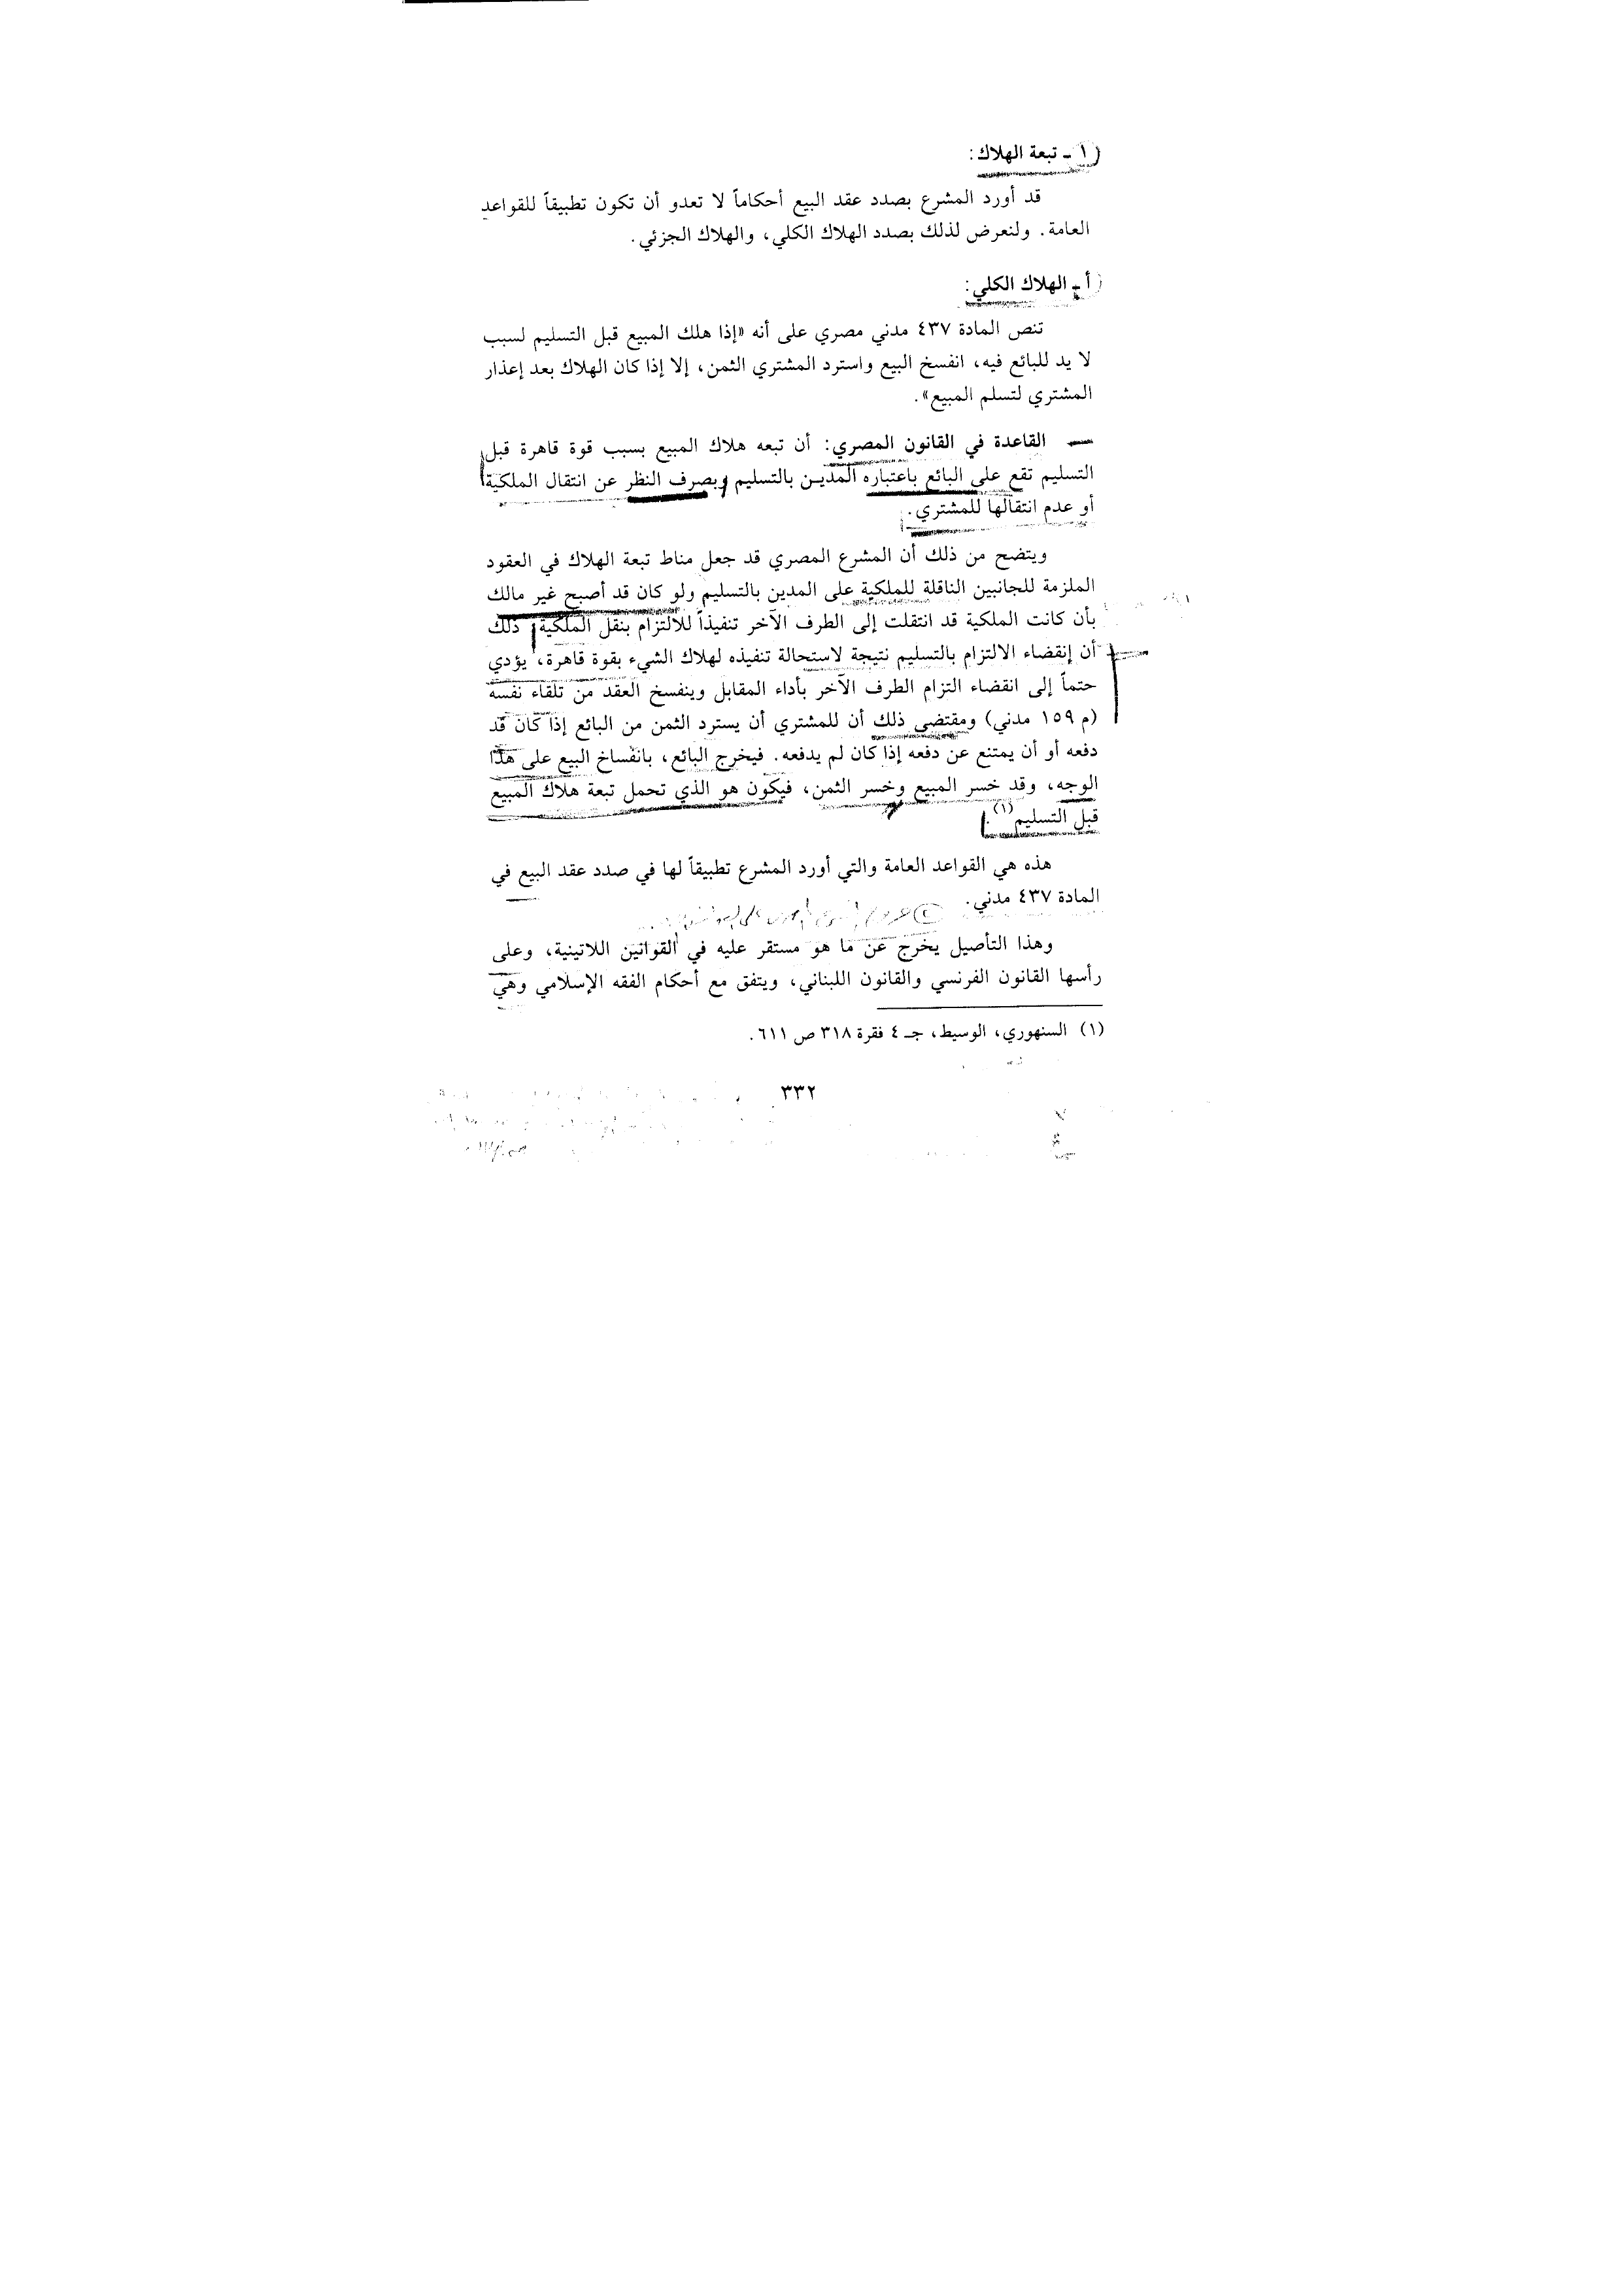 ١ - تبعة الهلاك:
قد أورد المشرع بصدد عقد البيع أحكاماً لا تعدو أن تكون تطبيقاً للقواعد
العامة. ولنعرض لذلك بصدد الهلاك الكلي، والهلاك الجزئي.
أ - الهلاك الكلي:
تنص المادة ٤٣٧ مدني مصري على أنه «إذا هلك المبيع قبل التسليم لسبب
لا يد للبائع فيه، انفسخ البيع واسترد المشتري الثمن، إلا إذا كان الهلاك بعد إعذار
المشتري لتسلم المبيع».
— القاعدة في القانون المصري: أن تبعه هلاك المبيع بسبب قوة قاهرة قبل
التسليم تقع على البائع باعتباره المدين بالتسليم وبصرف النظر عن انتقال الملكية
أو عدم انتقالها للمشتري.
ويتضح من ذلك أن المشرع المصري قد جعل مناط تبعة الهلاك في العقود
الملزمة للجانبين الناقلة للملكية على المدين بالتسليم ولو كان قد أصبح غير مالك
بأن كانت الملكية قد انتقلت إلى الطرف الآخر تنفيذاً للالتزام بنقل الملكية، ذلك
أن إنقضاء الالتزام بالتسليم نتيجة لاستحالة تنفيذه لهلاك الشيء بقوة قاهرة، يؤدي
حتماً إلى انقضاء التزام الطرف الآخر بأداء المقابل وينفسخ العقد من تلقاء نفسه
(م ١٥٩ مدني) ومقتضى ذلك أن للمشتري أن يسترد الثمن من البائع إذا كان قد
دفعه أو أن يمتنع عن دفعه إذا كان لم يدفعه. فيخرج البائع، بانفساخ البيع على هذا
الوجه، وقد خسر المبيع وخسر الثمن، فيكون هو الذي تحمل تبعة هلاك المبيع
قبل التسليم(١).
هذه هي القواعد العامة والتي أورد المشرع تطبيقاً لها في صدد عقد البيع في
المادة ٤٣٧ مدني.
وهذا التأصيل يخرج عن ما هو مستقر عليه في القوانين اللاتينية، وعلى
رأسها القانون الفرنسي والقانون اللبناني، ويتفق مع أحكام الفقه الإسلامي وهي
(١) السنهوري، الوسيط، جـ ٤ فقرة ٣١٨ ص ٦١١.
٣٣٢